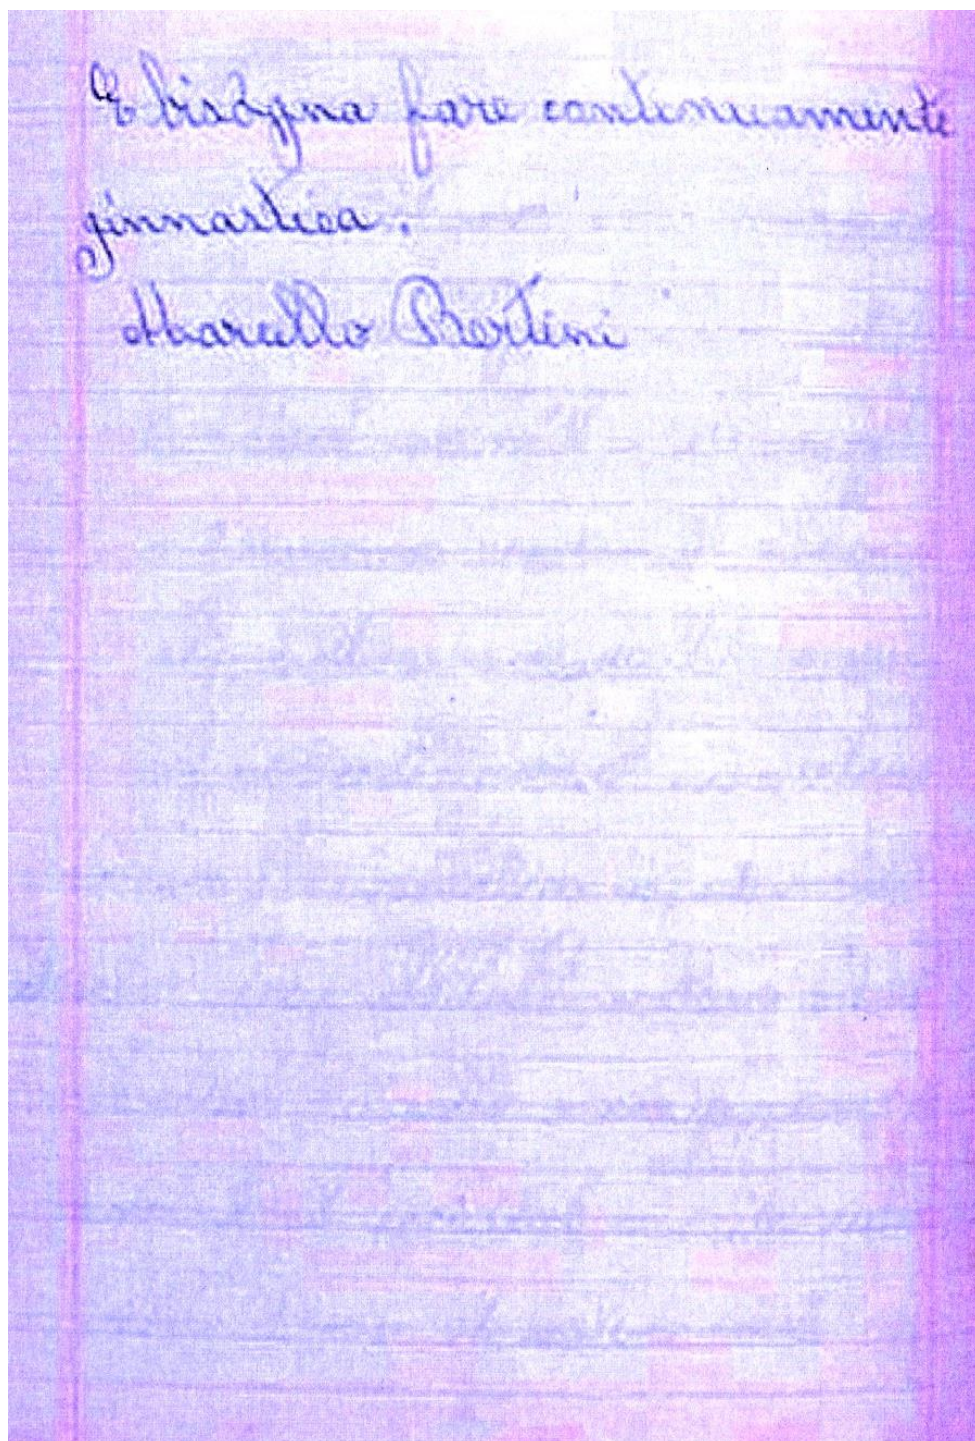 E bisogna fare continuamente
ginnastica.
Marcello Bertini